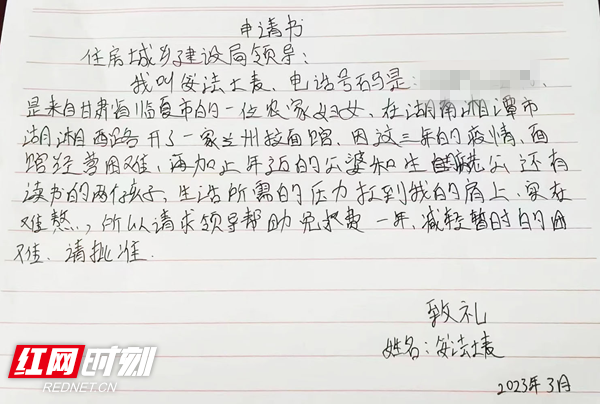 申请书
住房城乡建设局领导:
我叫妥法土麦、电话号码是:
是来自甘肃省临夏市的一位农家妇女、在湖南湘潭市
湖湘西路开了一家兰州拉面馆、因这三年的疫情、面
馆经营困难、再加上年迈的公婆和生 公还有
读书的两个孩子、生活所需的压力扛到我的肩上、实在
难熬、所以请求领导帮助免 费一年、减轻暂时的困
难、请批准.
致礼
姓名:妥法土麦
2023年3月
红网时刻
REDNET.CN